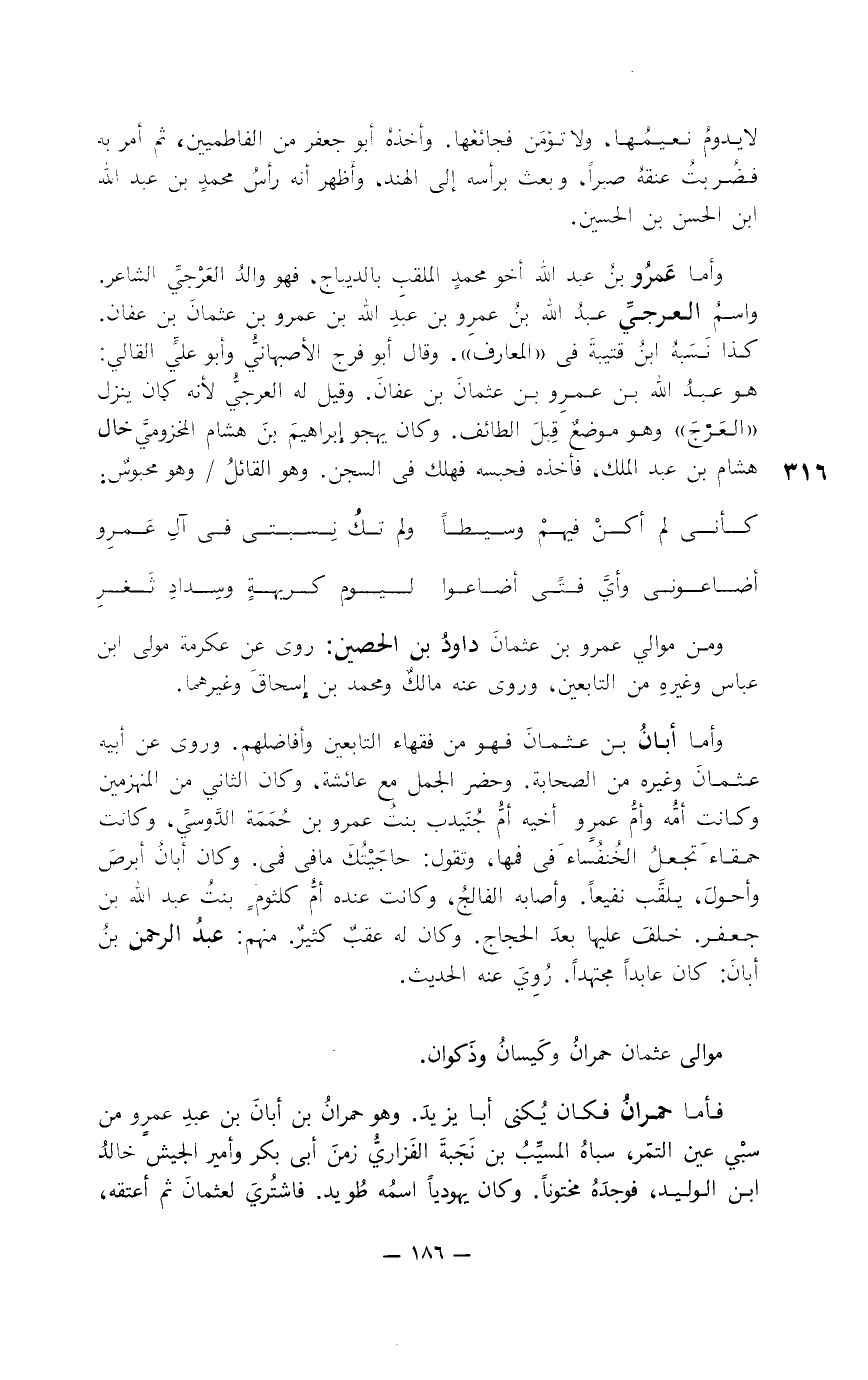 لايدومُ نعيمُها، ولا تؤمَن فجائعُها. وأخذهُ أبو جعفر من الفاطميين، ثم أمر به
فضُربتُ عنقهُ صبراً، وبعث برأسه إلى الهند، وأظهر أنه رأسُ محمدٍ بن عبد الله
ابن الحسن بن الحسين.
وأما عَمرُو بنُ عبد الله أخو محمدٍ الملقبِ بالديباج، فهو والدُ العَرْجيِّ الشاعر.
واسمُ العرجيِّ عبدُ الله بنُ عمرٍو بن عبدِ الله بن عمرو بن عثمانَ بن عفان.
كذا نَسَبَهُ ابنُ قتيبةَ فى «المعارف». وقال أبو فرج الأصبهانيُّ وأبو عليٍّ القالي:
هو عبدُ الله بن عمرو بن عثمانَ بن عفانَ. وقيل له العرجيُّ لأنه كان ينزل
«العَرْجَ» وهو موضعٌ قِبلَ الطائف. وكان يهجو إبراهيمَ بنَ هشام المخزوميَّ خال
هشام بن عبد الملك، فأخذه فحبسه فهلك فى السجن. وهو القائلُ / وهو محبوسٌ: ٣١٦
كأنى لم أكنْ فيهمْ وسيطاً ولم تكُ نِسبتى فى آلِ عَمرِو
أضاعونى وأيَّ فتًى أضاعوا ليوم كريهةٍ وسِدادِ ثَغرِ
ومن موالي عمرو بن عثمانَ داودُ بن الحصين: روى عن عكرمة مولى ابن
عباس وغيرِهِ من التابعين، وروى عنه مالكٌ ومحمد بن إسحاقَ وغيرهما.
وأما أبانُ بن عثمانَ فهو من فقهاء التابعين وأفاضلهم. وروى عن أبيه
عثمانَ وغيره من الصحابة. وحضر الجمل مع عائشة، وكان الثاني من المنهزمين
وكانت أمُّه وأمُّ عمرٍو أخيه أمُّ جُنَيدب بنتُ عمرو بن حُمَمَة الدَّوسيِّ، وكانت
حمقاءَ تجعلُ الخُنفُساءَ فى فمها، وتقول: حاجَيْتُكَ مافى فمى. وكان أبانُ أبرصَ
وأحولَ، يلقَّب نفيعاً. وأصابه الفالجُ، وكانت عنده أمُّ كلثومٍ بنتُ عبد الله بن
جعفر. خلفَ عليها بعدَ الحجاج. وكان له عقبٌ كثيرٌ. منهم: عبدُ الرحمن بنُ
أبانَ: كان عابداً مجتهداً. رُوِيَ عنه الحديث.
موالى عثمان حمرانُ وكَيسانُ وذَكوان.
فأما حمرانُ فكان يُكنى أبا يزيدَ. وهو حمرانُ بن أبانَ بن عبدِ عمرٍو من
سبْي عين التمْر، سباهُ المسيِّبُ بن نَجَبةَ الفَزاريُّ زمنَ أبى بكر وأمير الجيش خالدُ
ابن الوليد، فوجدَهُ مختوناً. وكان يهودياً اسمُه طُويد. فاشتُريَ لعثمانَ ثم أعتقه،
— ١٨٦ —